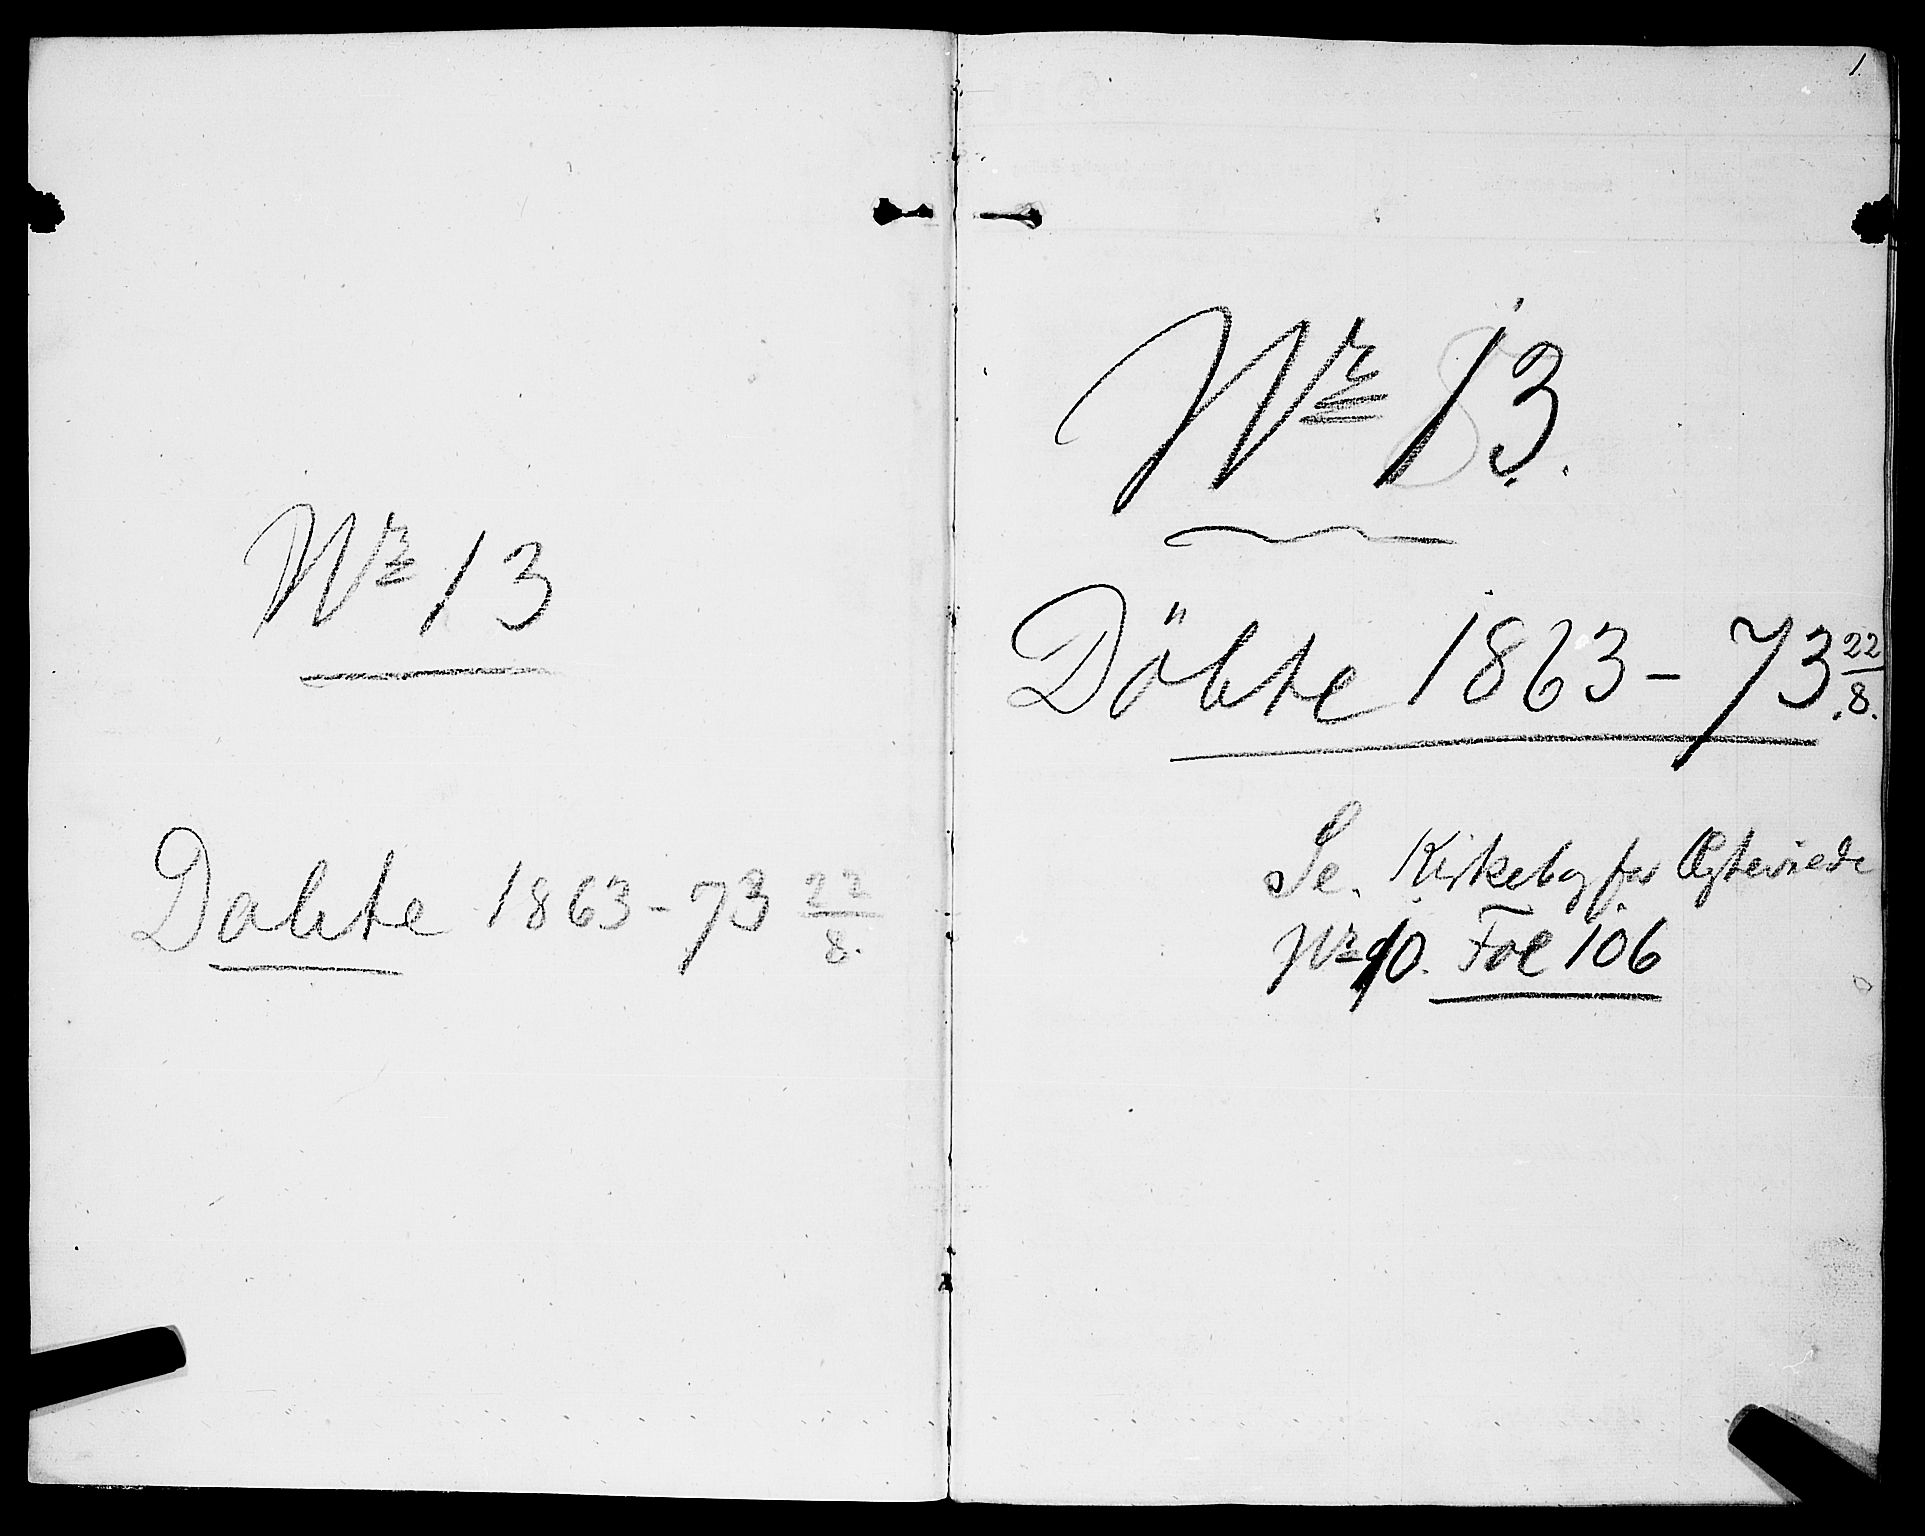 Nr 13
Dabte 1863-73 22/8.
1.
Nr 13.
Döbte 1863-73. 22/8.
Se. Kirkebog for Ægteviede
Nr 10. Fol 106